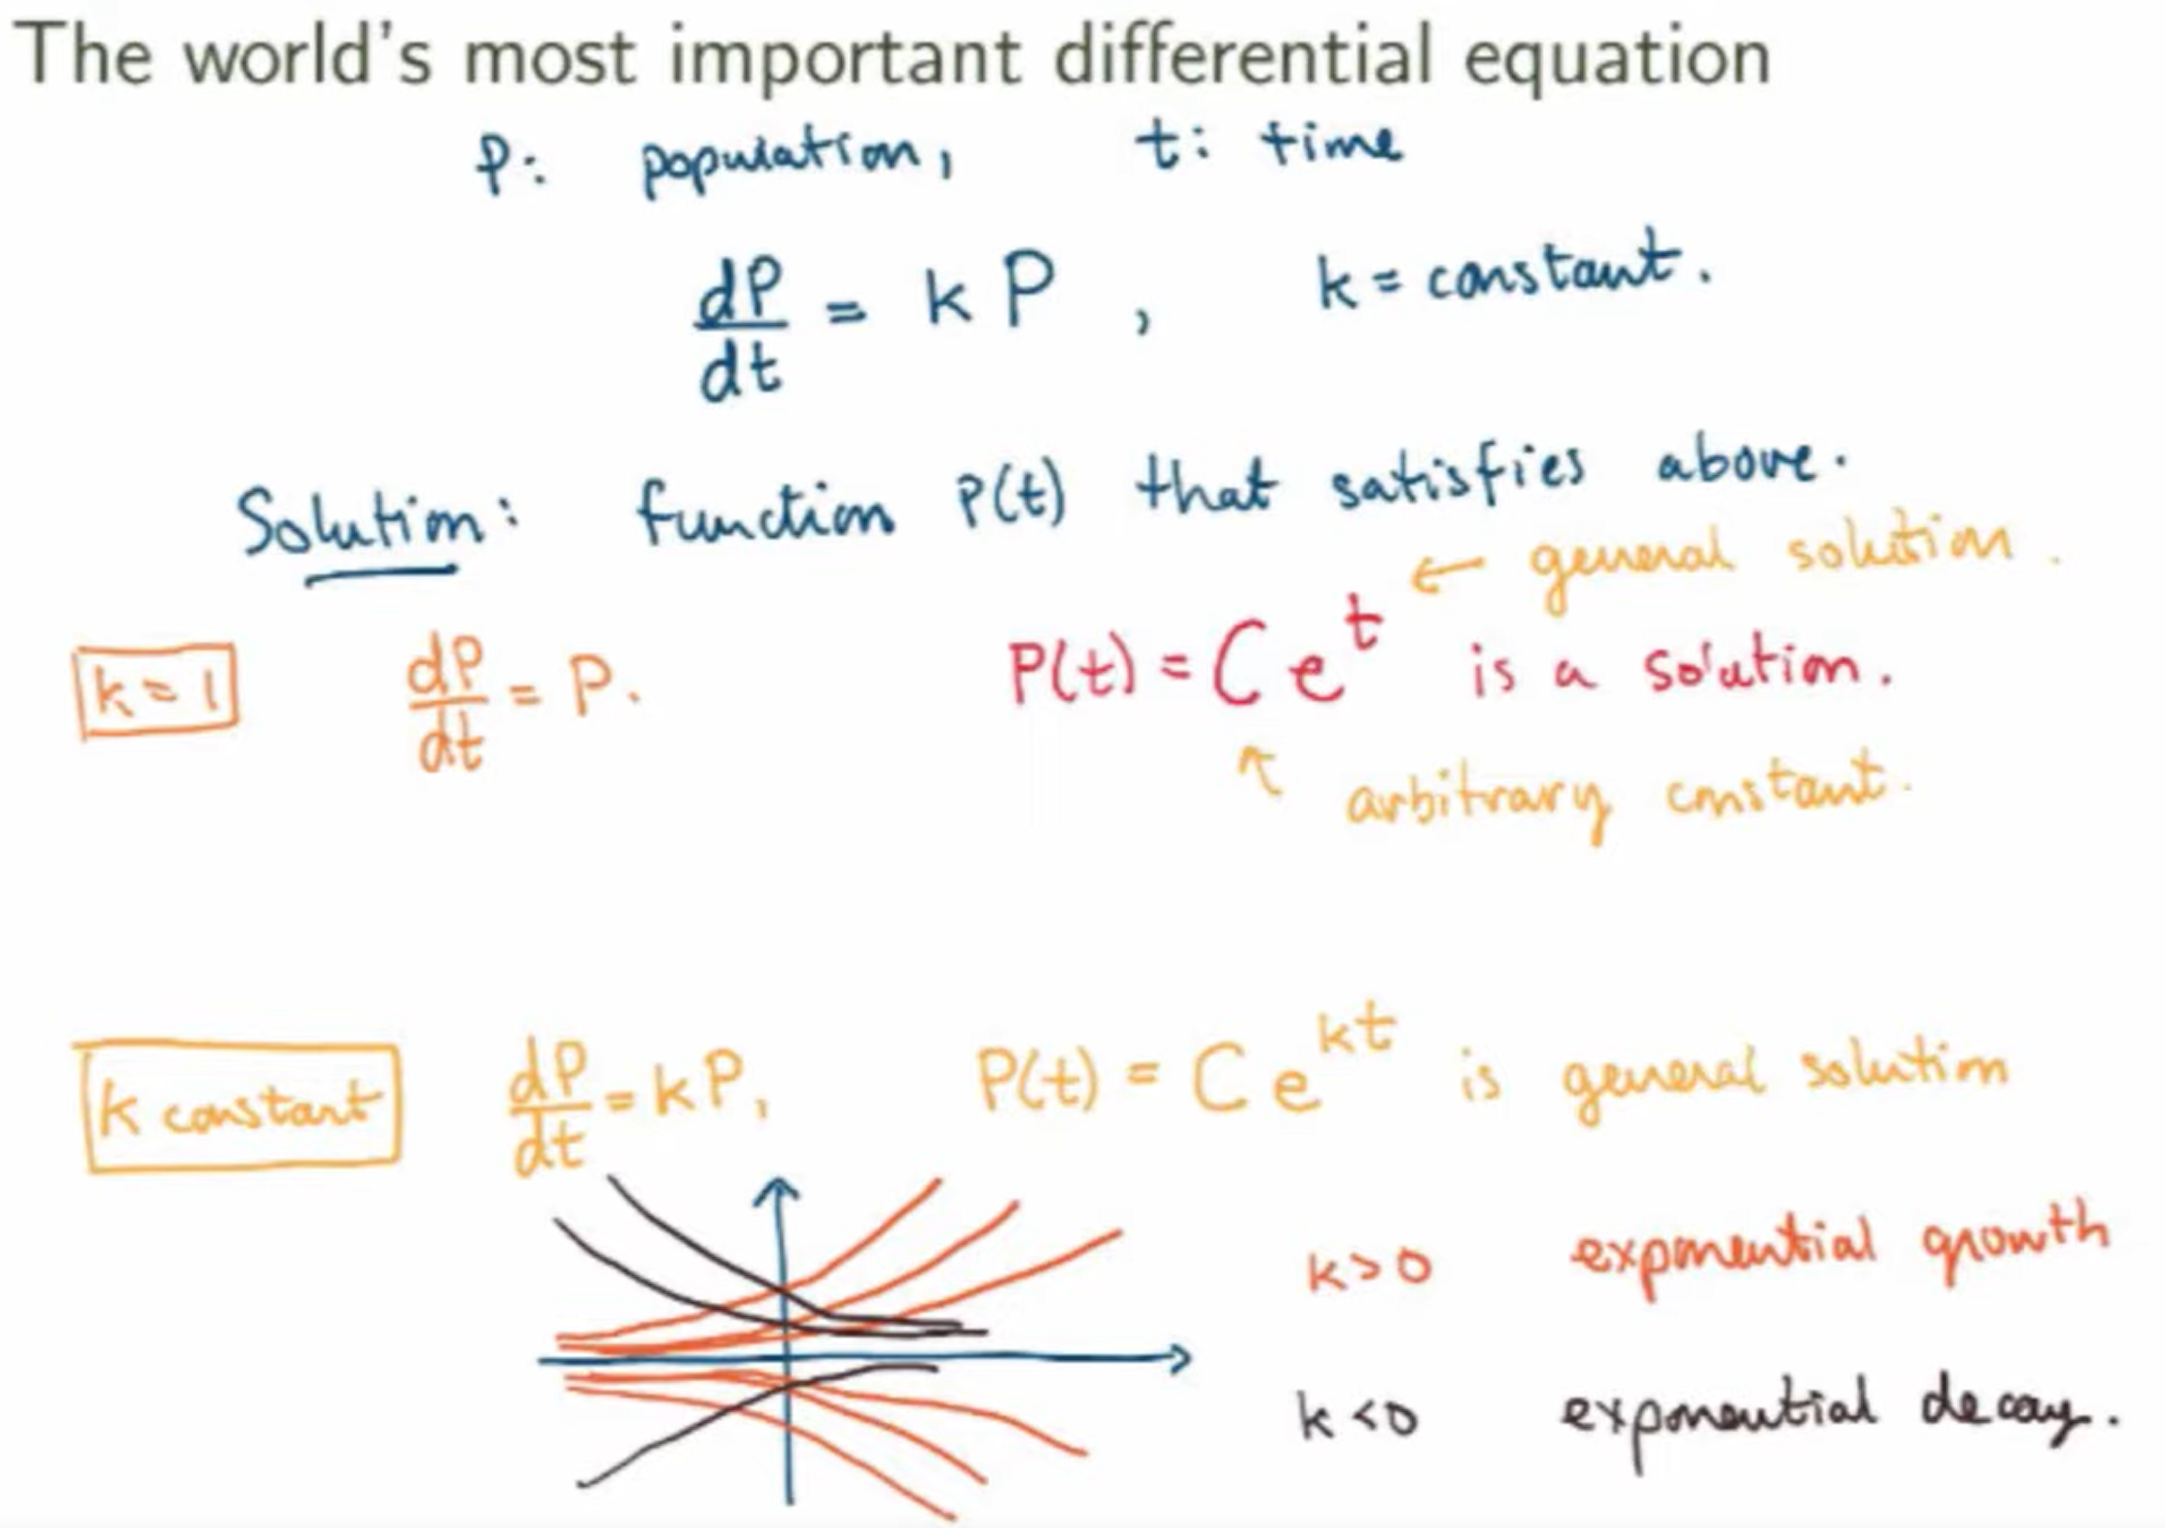 The world's most important differential equation
P: population, t: time
dP/dt = k P, k = constant.
Solution: function P(t) that satisfies above.
← general solution.
k = 1 dP/dt = P. P(t) = C e^t is a solution.
↑ arbitrary constant.
k constant dP/dt = k P, P(t) = C e^{kt} is general solution
k > 0 exponential growth
k < 0 exponential decay.